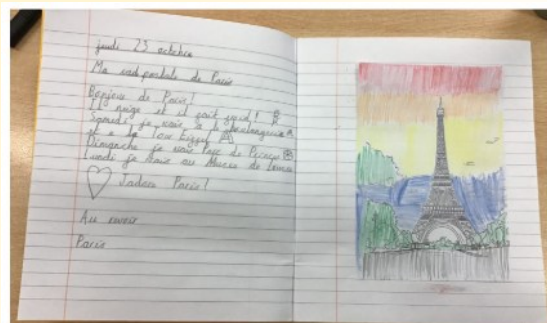 jeudi 23 octobre
Ma carte postale de Paris
Bonjour de Paris!
Il neige et il fait froid!
Samedi je vais à la boulangerie
et a la Tour Eiffel
Dimanche je vais Parc de
Lundi je vais au Musée de
J'adore Paris!
Au revoir
Paris